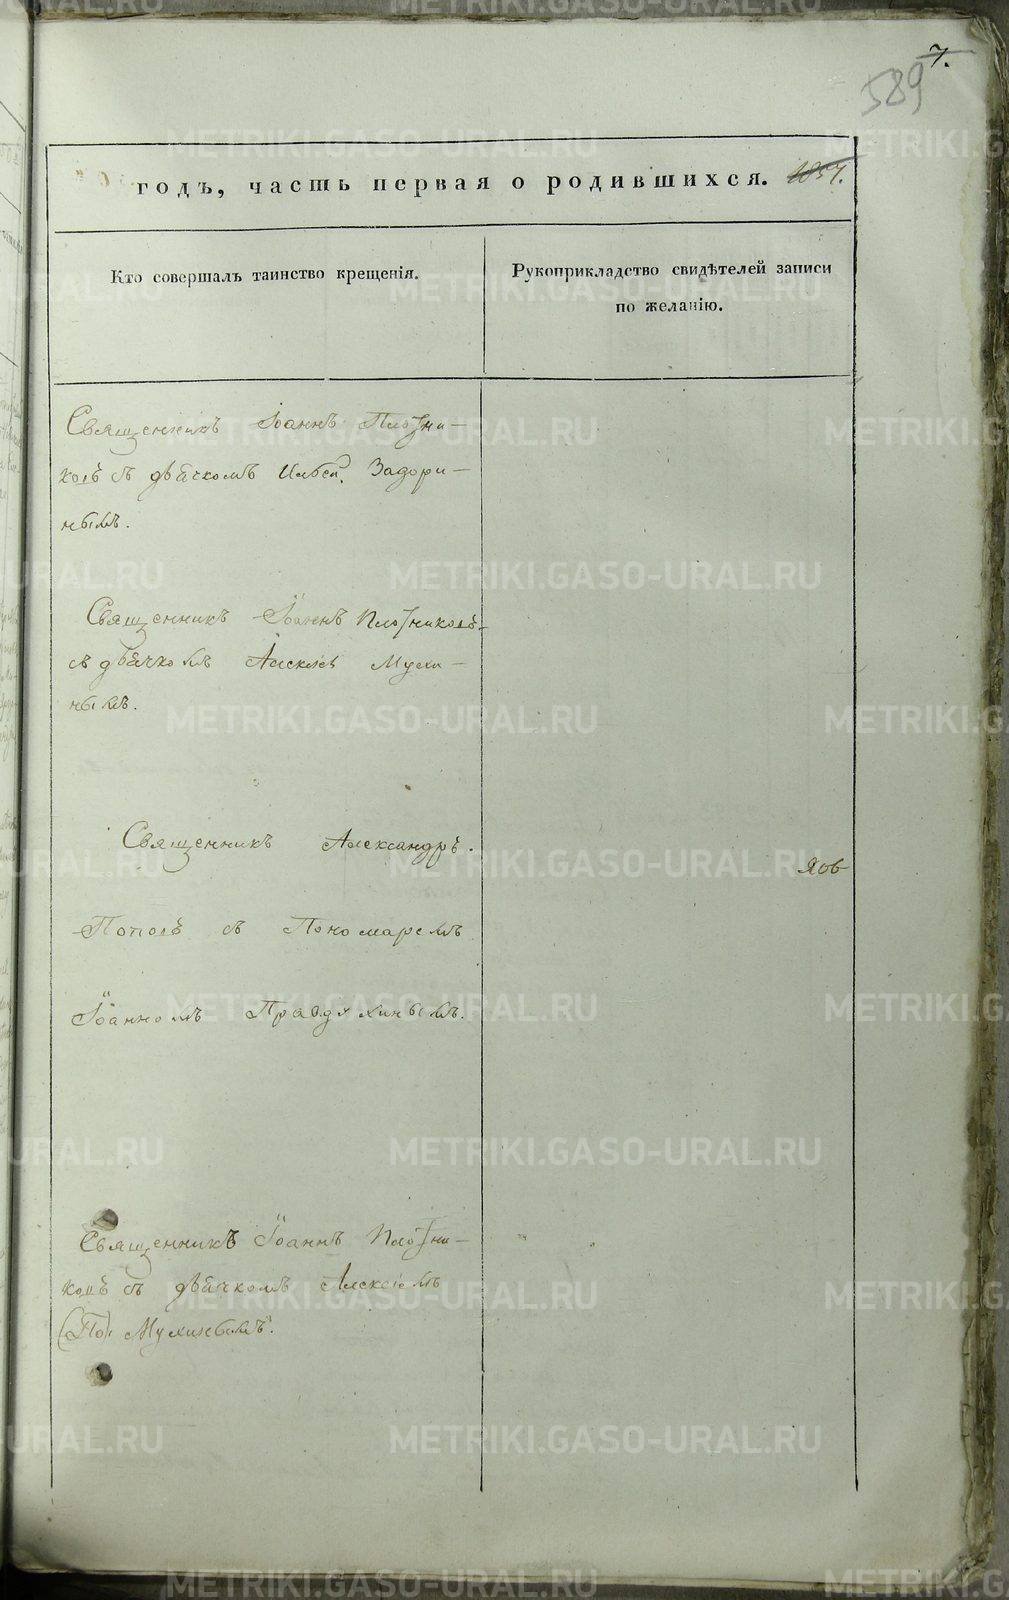 7.
589
годъ, часть первая о родившихся. 1857.
Кто совершалъ таинство крещенія.
Рукоприкладство свидѣтелей записи
по желанію.
Священникъ Іоаннъ Плотни-
ковъ съ дьячкомъ Задори-
нымъ.
Священникъ Іоаннъ Плотниковъ
съ дьячкомъ Алексѣй Мухи-
нымъ.
Священникъ Александръ
Яов
Поповъ съ Пономаремъ
Іоанномъ Правдухинымъ.
Священникъ Іоаннъ Плотни-
ковъ съ дьячкомъ Алексіемъ
(По) Мухинымъ.
METRIKI.GASO-URAL.RU